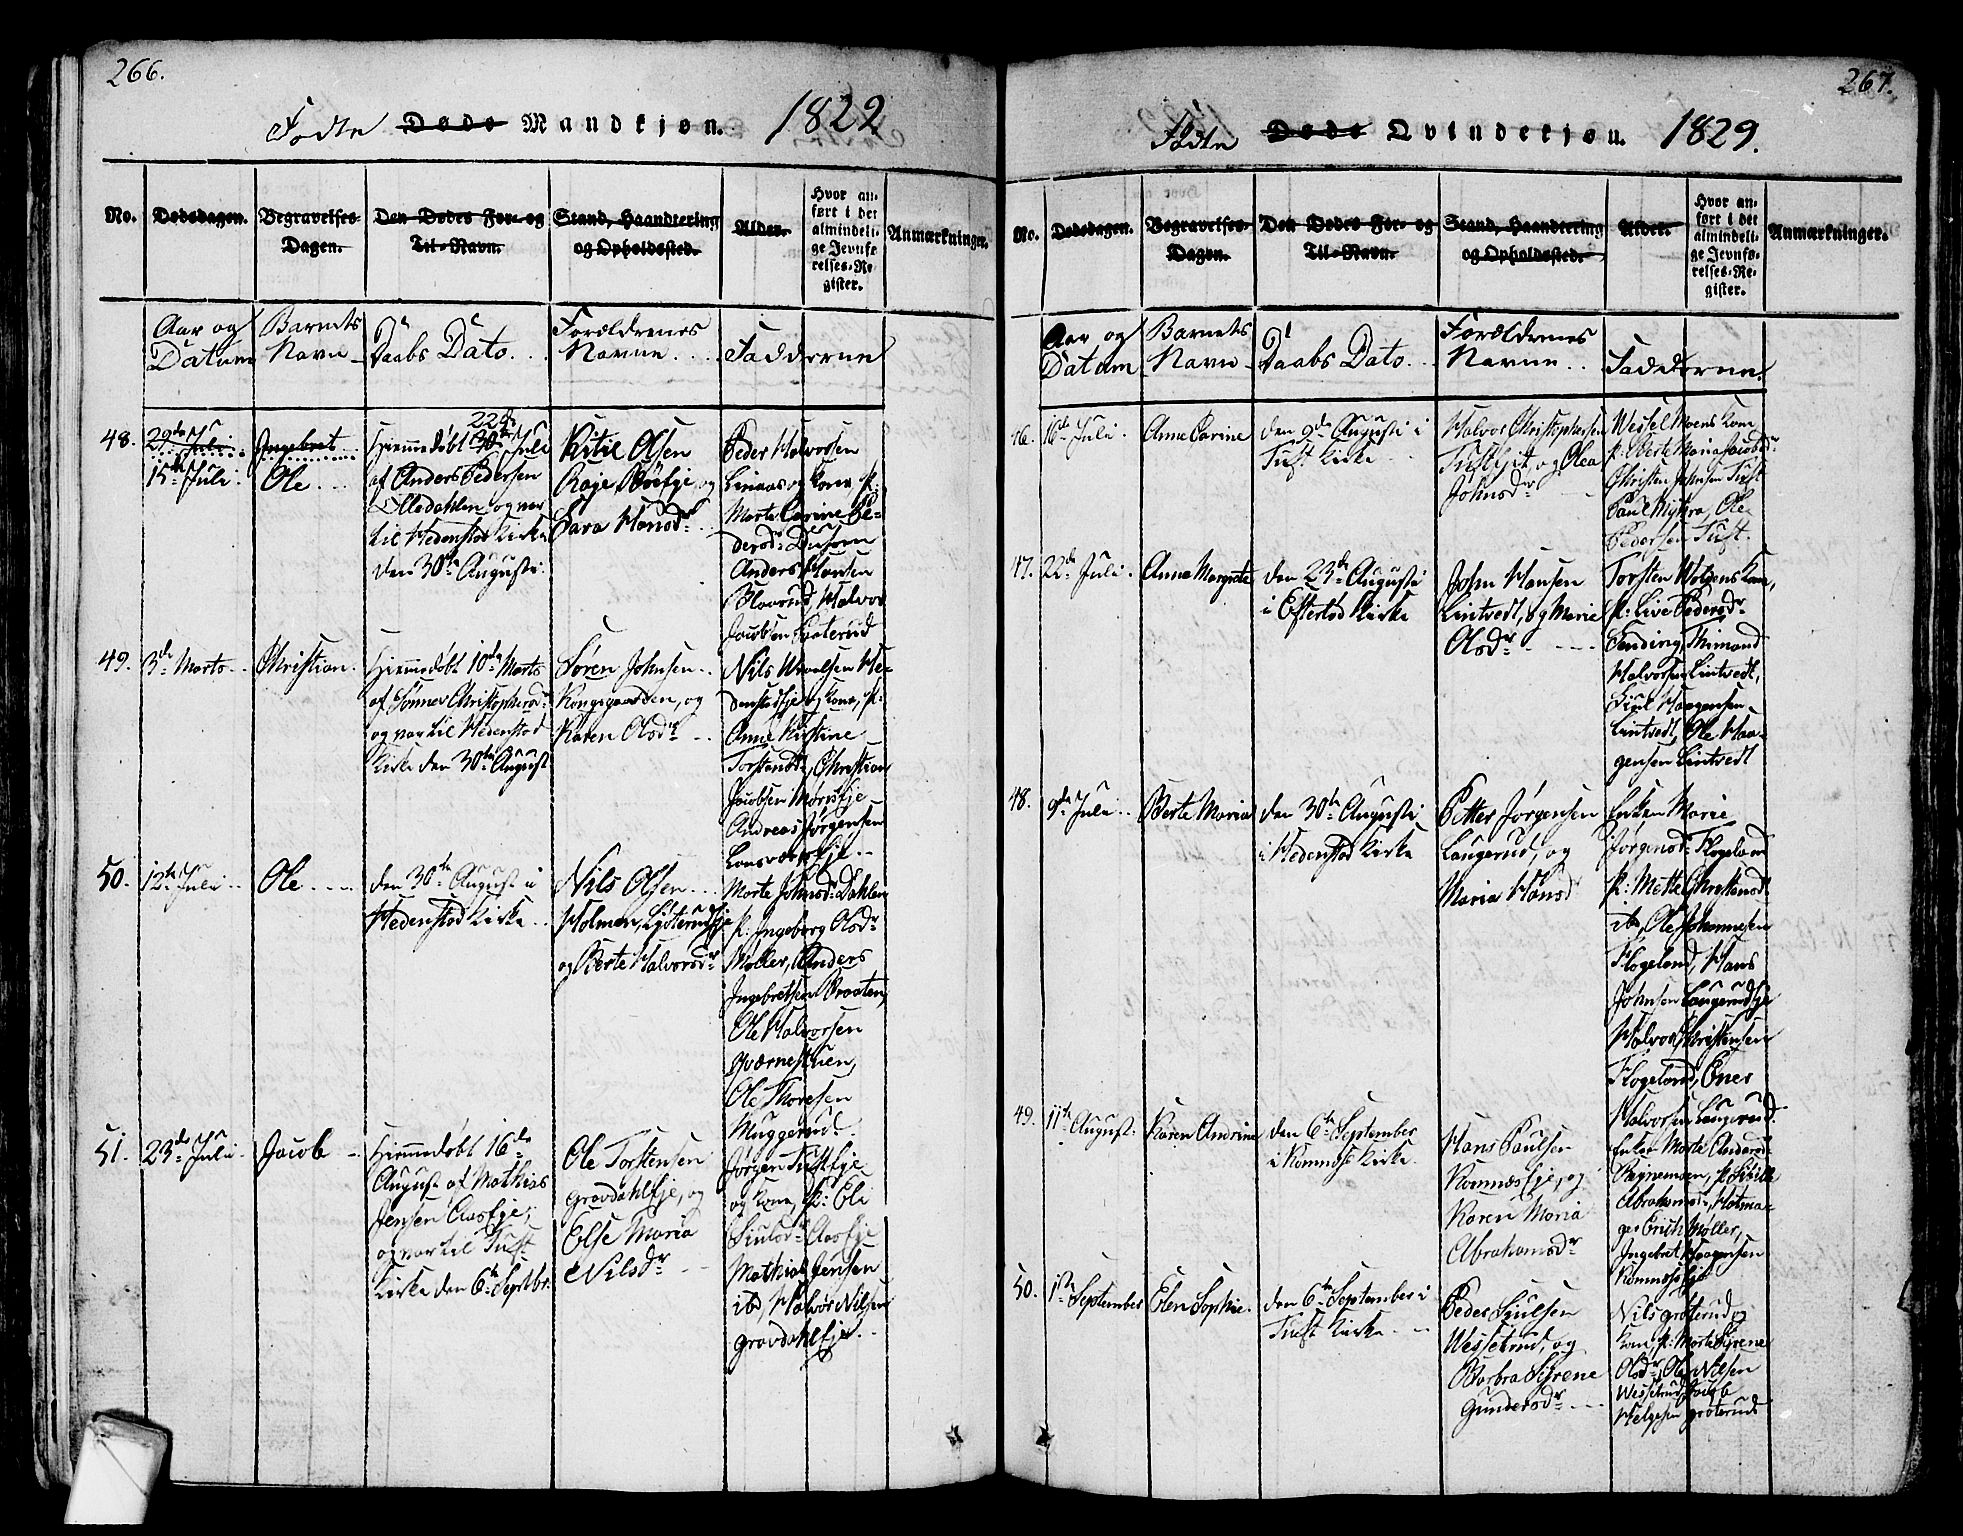 266.
Fødte Døde Mandkjøn. 1829
No.
Dødsdagen.
Begravelses-
Dagen.
Den Dødes For- og
Til-Navn.
Stand, Haandtering
og Opholdssted.
Alder.
Hvor an-
ført i det
almindeli-
ge Jevnfø-
relses-Re-
gister.
Anmærkninger.
Aar og
Datum
Barnets
Navn
Daabs Dato.
Forældrenes
Navne
Fadderne
48.
29de Juli
15de Juli
Ingebret
Ole
22de
Hiemmedøbt 30te Juli
af Anders Pedersen
Olledahlen og var
til Hedenstad Kirke
den 30te Augusti.
Kitil Olsen
Raje Børsje, og
Sara Hansdr
Peder Halvorsen
Linaas og Kone, p:
Marte Carine Pe-
dersdr
Anders Hansen
Haarud, Halvor
Jacobsen
49.
3de Marts
Christian.
Hiemmedøbt 10de Marts
af Gunner Christophersdr
og var til Hedenstad
Kirke den 30te August
Søren Johnsen
Kongsgaarden, og
Karen Olsdr
Nils
og Kone, p:
Anne Kirstine
Torstensdr, Christian
Jacobsen Mørnsje
Andreas Jørgensen
50.
12te Juli
Ole
den 30te August i
Hedenstad Kirke
Nils Olsen
Holmen,
og Berte Halvorsdr
Marte Johnsdr Dahlen
p: Ingeborg Olsdr
Møller, Anders
Ingebretsen Braaten,
Ole Halvorsen
Qværnestuen,
Ole Thoresen
Muggerud.
51.
23de Juli
Jacob
Hiemmedøbt 16de
August af Mathias
Jensen Aaseje,
og var til Tuft
Kirke den 6te Septbr.
Ole Torstensen
Gravdahleje, og
Else Maria
Nilsdr
Jørgen Tufteje
og Kone, p: Eli
Siulsdr Aaseje
Mathias Jensen
ibd, Halvor Nilsen
Gravdahleje.
267.
Fødte Døde Qvindekjøn. 1829.
No.
Dødsdagen.
Begravelses-
Dagen.
Den Dødes For- og
Til-Navn.
Stand, Haandtering
og Opholdssted.
Alder.
Hvor an-
ført i det
almindeli-
ge Jevnfø-
relses-Re-
gister.
Anmærkninger.
Aar og
Datum
Barnets
Navn
Daabs Dato
Forældrenes
Navne
Fadderne.
46.
16de Juli.
Anne Carine
den 9de Augusti i
Tuft Kirke
Halvor Christophersen
Tufteje, og Olea
Johnsdr
Wessel Moens Kone
p: Berte Maria Jacobsdr
Christen Johnsen Tuft
Paul Myhra, Ole
Pedersen Tuft.
47.
22de Juli.
Anne Margrete
den 23de Augusti
i Efteløt Kirke
John Hansen
Lintvedt, og Marie
Olsdr
Torsten Wølgens Kone,
p: Live Pedersdr
Sending, Thimand
Halvorsen Lintvedt,
Siul Haagensen
Lintvedt, Ole Haa-
gensen Lintvedt
48.
9de Juli
Berte Maria
den 30te Augusti
i Hedenstad Kirke
Petter Jørgensen
Laugerud, og
Maria Hansdr
Enken Marie
Jørgensdr Flogeland
p: Mette Christensdr
ibd, Ole Johannesen
Flogeland, Hans
Johnsen Laugerudeje
Halvor Christensen
Flogeland, Ener
Halvorsen Laugerud.
49.
11te August.
Karen Andrine
den 6te September
i Komnæs Kirke.
Hans Paulsen
Komnæseje, og
Karen Maria
Abrahamsdr
Enken Marte Andersdr
Abrahamsdr,
Erich Møller,
Ingebret Haagensen
Komnæseje
50.
1ste September
Elen Sophie.
den 6te September i
Tuft Kirke
Peder Siulsen
Wessetrud, og
Barbra Syrene
Gundersdr
Nils Grøterud og
Kone, p: Marte Syrene
Olsdr, Ole Nilsen
Wessetrud, Jacob
Helgesen Grøterud.